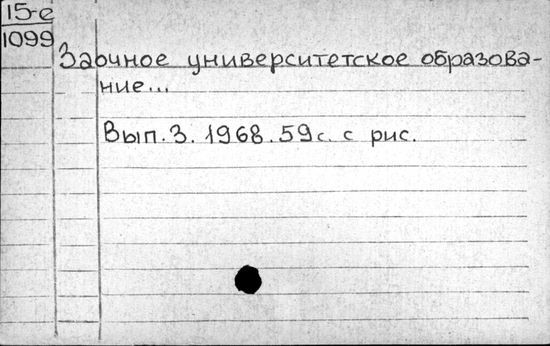 15-е
1099
Заочное университетское образова-
ние...
Вып. 3. 1968. 59 с. с рис.